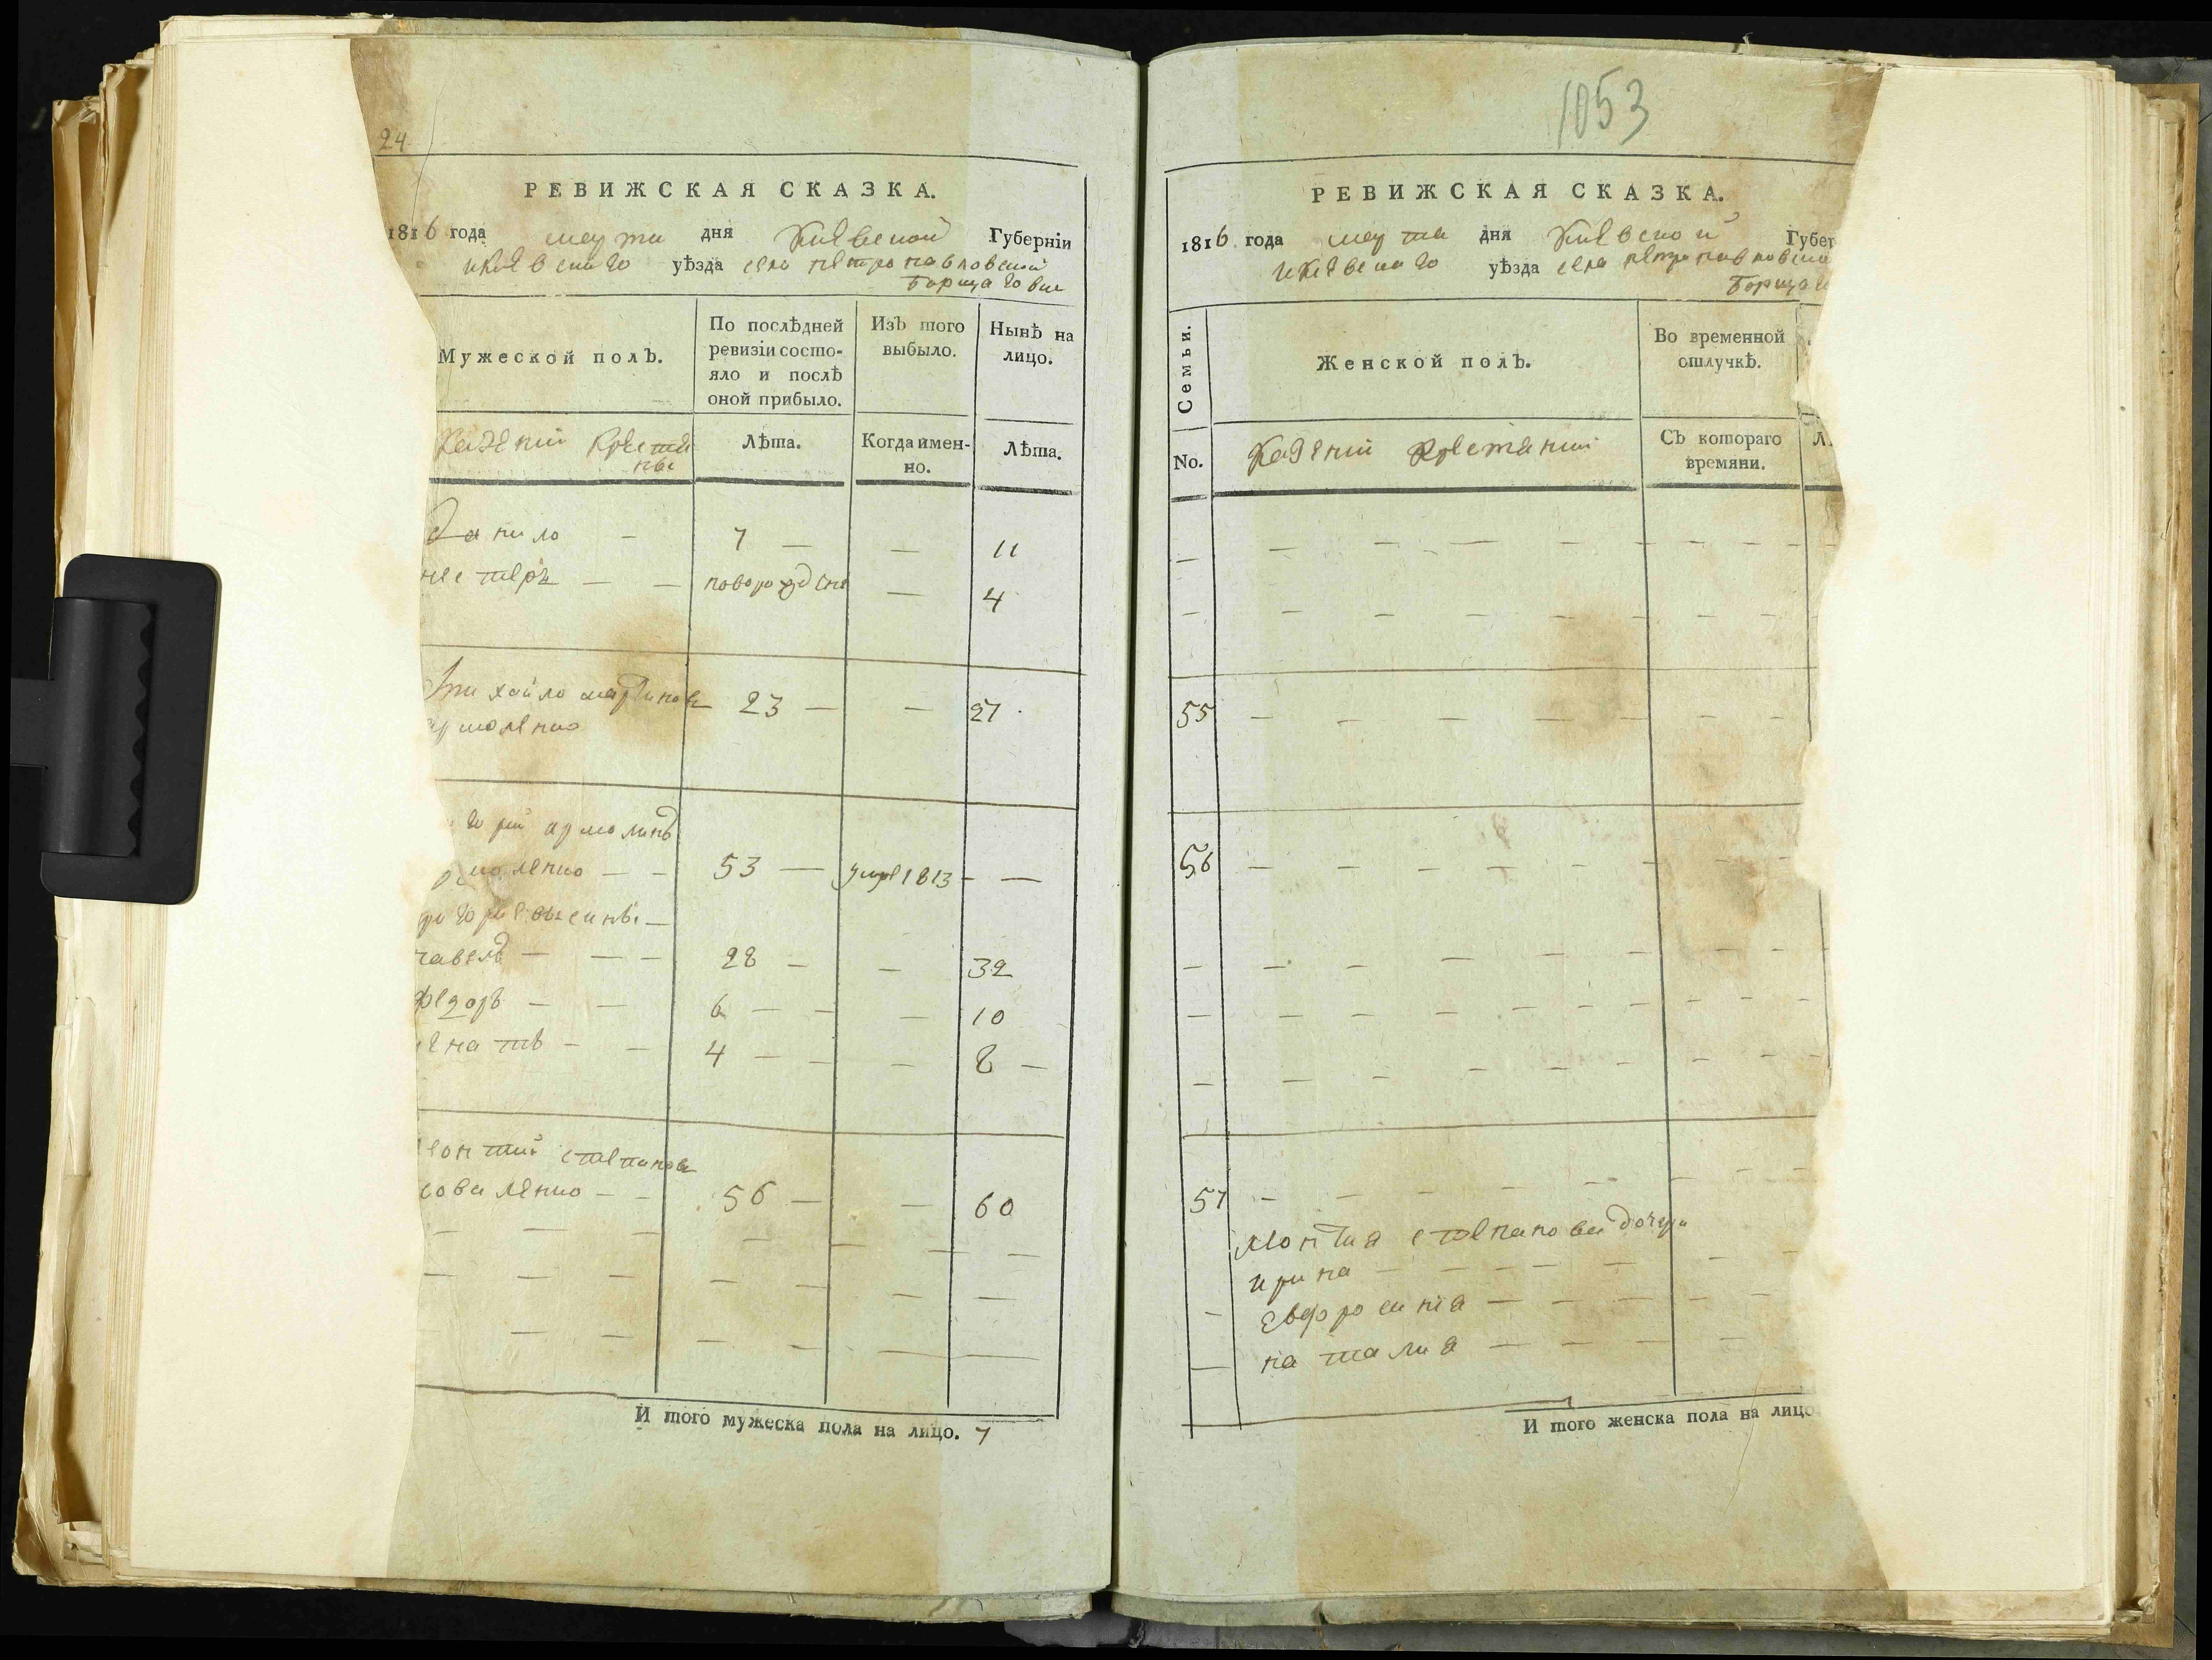 24
РЕВИЖСКАЯ СКАЗКА.
1816 года марта дня Киевской Губерніи
и Киевскаго уѣзда села петропавловской
Борщаговки
Мужеской полЪ.
По послѣдней ревизіи состояло и послѣ оной прибыло.
ИзЪ того выбыло.
Нынѣ на лицо.
Казенніи Крестяне
Лѣта.
Когда именно.
Лѣта.
Данило — 7 — — 11
нестеръ — — новорожденъ — 4
Михайло мартиновъ 23 — — 27
ярмоленко
горий ярмолинъ
рмоленко — — 53 — умре 1813 — —
григориевы сины —
павелъ — — — 28 — — 32
федоръ — — 6 — — — 10
игнатъ — — 4 — — — 8 —
леонтий степановъ
коваленко — — 56 — — 60
И того мужеска пола на лицо. 7
1053
РЕВИЖСКАЯ СКАЗКА.
1816 года марта дня Киевской Губер
и Киевскаго уѣзда села петропавловско
Борщаго
Семьи.
Женской полЪ.
Во временной отлучкѣ.
No.
Казенніи Крестянки
СЪ котораго времяни.
Л
55
56
57
леонтия степанова дочери
ирина
Евфросиния
наталия
И того женска пола на лицо